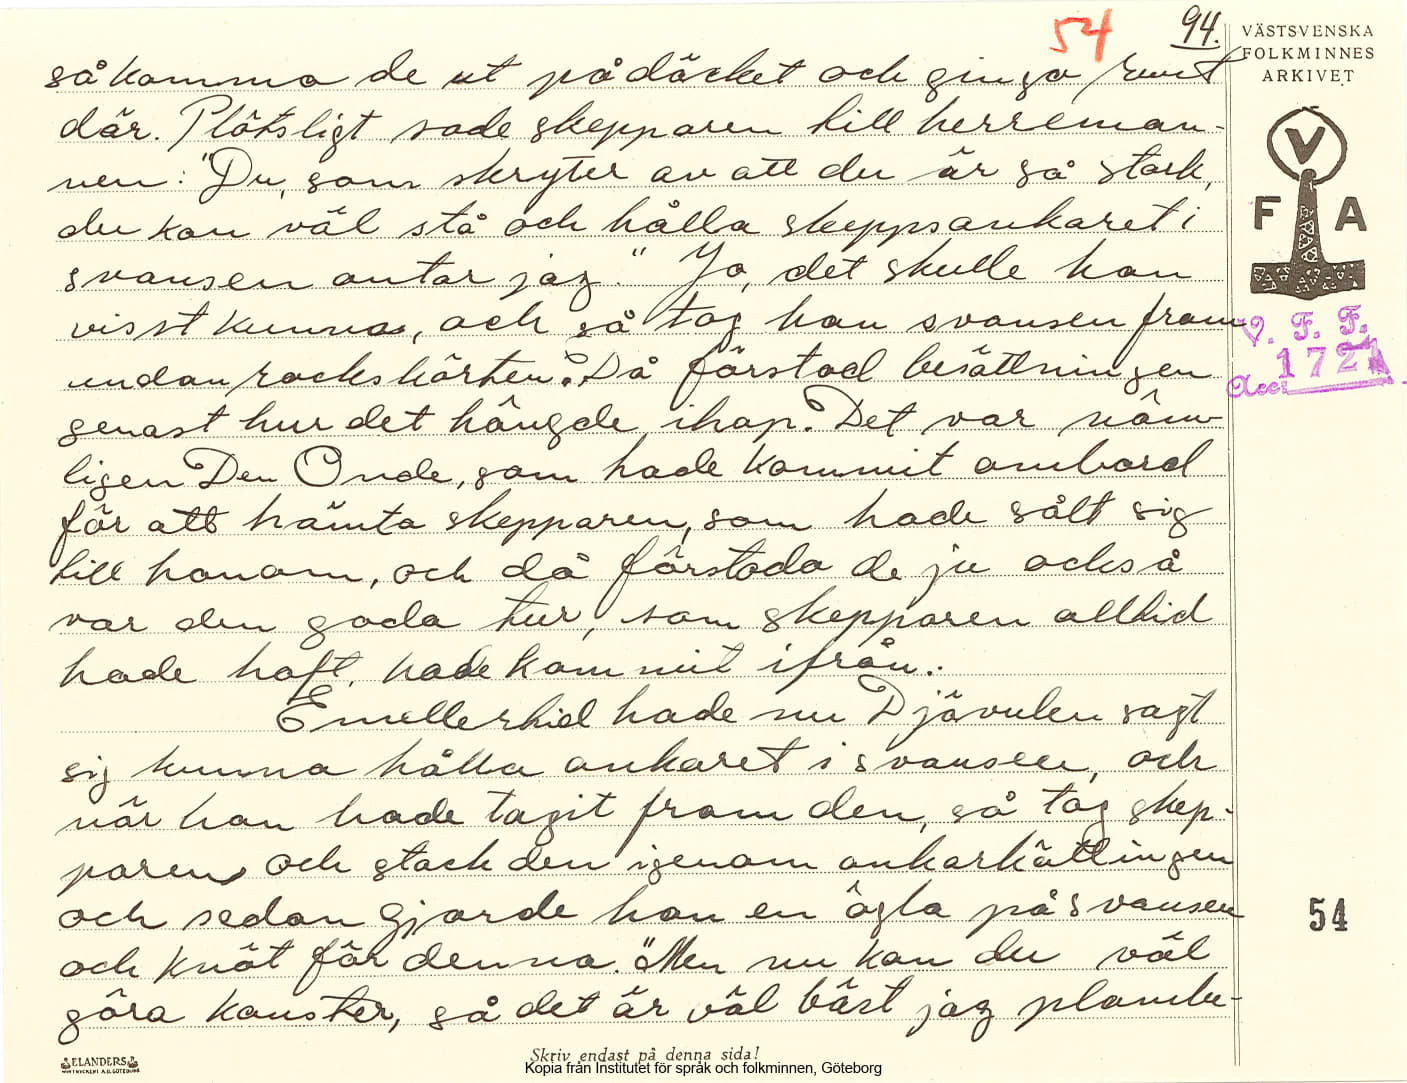 54 94.
VÄSTSVENSKA
FOLKMINNES
ARKIVET
så komma de ut på däcket och ginga runt
där. Plötsligt sade skepparen till herreman-
nen: "Du, som skryter av att du är så stark,
du kan väl stå och hålla skeppsankaret i
svansen antar jag." Ja, det skulle han
visst kunna, och så tog han svansen fram
undan rockskörten. Då förstod besättningen
genast hur det hängde ihop. Det var näm-
ligen Den Onde, som hade kommit ombord
för att hämta skepparen, som hade sålt sig
till honom, och då förstodo de ju också
var den goda tur, som skepparen alltid
hade haft, hade kommit ifrån.
Emellertid hade nu Djävulen sagt
sig kunna hålla ankaret i svansen, och
när han hade tagit fram den, så tog skep-
paren och stack den igenom ankarkättingen
och sedan gjorde han en ögla på svansen
och knöt för denna. "Men nu kan du väl
göra konster, så det är väl bäst jag plombe-
V
F A
V. F. F.
Acc: 1721
54
ELANDERS
BOKTRYCKERI A.B. GÖTEBORG
Skriv endast på denna sida!
Kopia från Institutet för språk och folkminnen, Göteborg